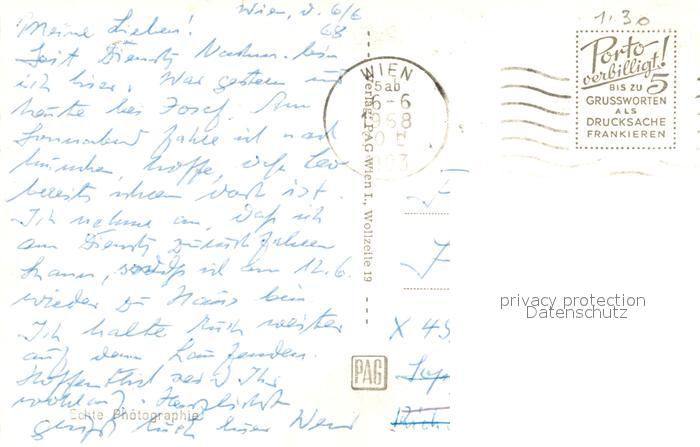 Wien, d. 6/6
68
Meine Lieben!
Seit Dienstg Nachm. bin
ich hier. War gestern und
heute bei Josef. Am
Sonnabend fahre ich nach
München, hoffe, daß
bereits dort ist.
Ich nehme an, daß ich
am Dienstg zurück fahren
kann, ich am 12.6.
wieder zu Haus bin.
Ich halte Euch weiter
auf dem Laufenden.
Hoffentlich seid Ihr
wohlauf. Herzlichst
grüßt Euch Euer
Echte Photographie
Verlag PAG Wien I., Wollzeile 19
PAG
WIEN
5ab
6-6
1968
1.30
Porto
verbilligt!
BIS ZU 5
GRUSSWORTEN
ALS
DRUCKSACHE
FRANKIEREN
X 45
privacy protection
Datenschutz